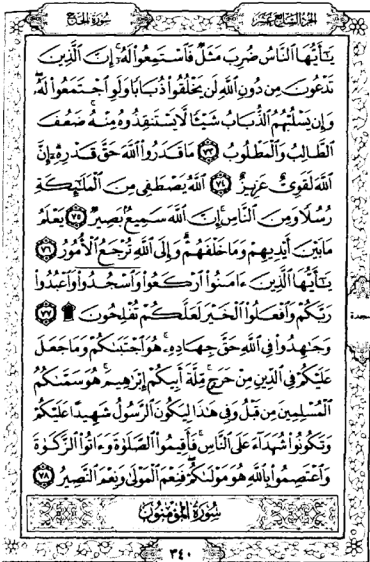 سُورَةُ الحَجِّ الجُزْءُ السَّابِعَ عَشَرَ
يَٰٓأَيُّهَا ٱلنَّاسُ ضُرِبَ مَثَلٌ فَٱسْتَمِعُوا۟ لَهُۥٓ ۚ إِنَّ ٱلَّذِينَ
تَدْعُونَ مِن دُونِ ٱللَّهِ لَن يَخْلُقُوا۟ ذُبَابًا وَلَوِ ٱجْتَمَعُوا۟ لَهُۥ ۖ
وَإِن يَسْلُبْهُمُ ٱلذُّبَابُ شَيْـًٔا لَّا يَسْتَنقِذُوهُ مِنْهُ ۚ ضَعُفَ
ٱلطَّالِبُ وَٱلْمَطْلُوبُ ٧٣ مَا قَدَرُوا۟ ٱللَّهَ حَقَّ قَدْرِهِۦٓ ۗ إِنَّ
ٱللَّهَ لَقَوِىٌّ عَزِيزٌ ٧٤ ٱللَّهُ يَصْطَفِى مِنَ ٱلْمَلَٰٓئِكَةِ
رُسُلًا وَمِنَ ٱلنَّاسِ ۚ إِنَّ ٱللَّهَ سَمِيعٌۢ بَصِيرٌ ٧٥ يَعْلَمُ
مَا بَيْنَ أَيْدِيهِمْ وَمَا خَلْفَهُمْ ۗ وَإِلَى ٱللَّهِ تُرْجَعُ ٱلْأُمُورُ ٧٦
يَٰٓأَيُّهَا ٱلَّذِينَ ءَامَنُوا۟ ٱرْكَعُوا۟ وَٱسْجُدُوا۟ وَٱعْبُدُوا۟
رَبَّكُمْ وَٱفْعَلُوا۟ ٱلْخَيْرَ لَعَلَّكُمْ تُفْلِحُونَ ۩ ٧٧
سجدة
وَجَٰهِدُوا۟ فِى ٱللَّهِ حَقَّ جِهَادِهِۦ ۚ هُوَ ٱجْتَبَىٰكُمْ وَمَا جَعَلَ
عَلَيْكُمْ فِى ٱلدِّينِ مِنْ حَرَجٍ ۚ مِّلَّةَ أَبِيكُمْ إِبْرَٰهِيمَ ۚ هُوَ سَمَّىٰكُمُ
ٱلْمُسْلِمِينَ مِن قَبْلُ وَفِى هَٰذَا لِيَكُونَ ٱلرَّسُولُ شَهِيدًا عَلَيْكُمْ
وَتَكُونُوا۟ شُهَدَآءَ عَلَى ٱلنَّاسِ ۚ فَأَقِيمُوا۟ ٱلصَّلَوٰةَ وَءَاتُوا۟ ٱلزَّكَوٰةَ
وَٱعْتَصِمُوا۟ بِٱللَّهِ هُوَ مَوْلَىٰكُمْ ۖ فَنِعْمَ ٱلْمَوْلَىٰ وَنِعْمَ ٱلنَّصِيرُ ٧٨
سُورَةُ المُؤْمِنُون
٣٤٠